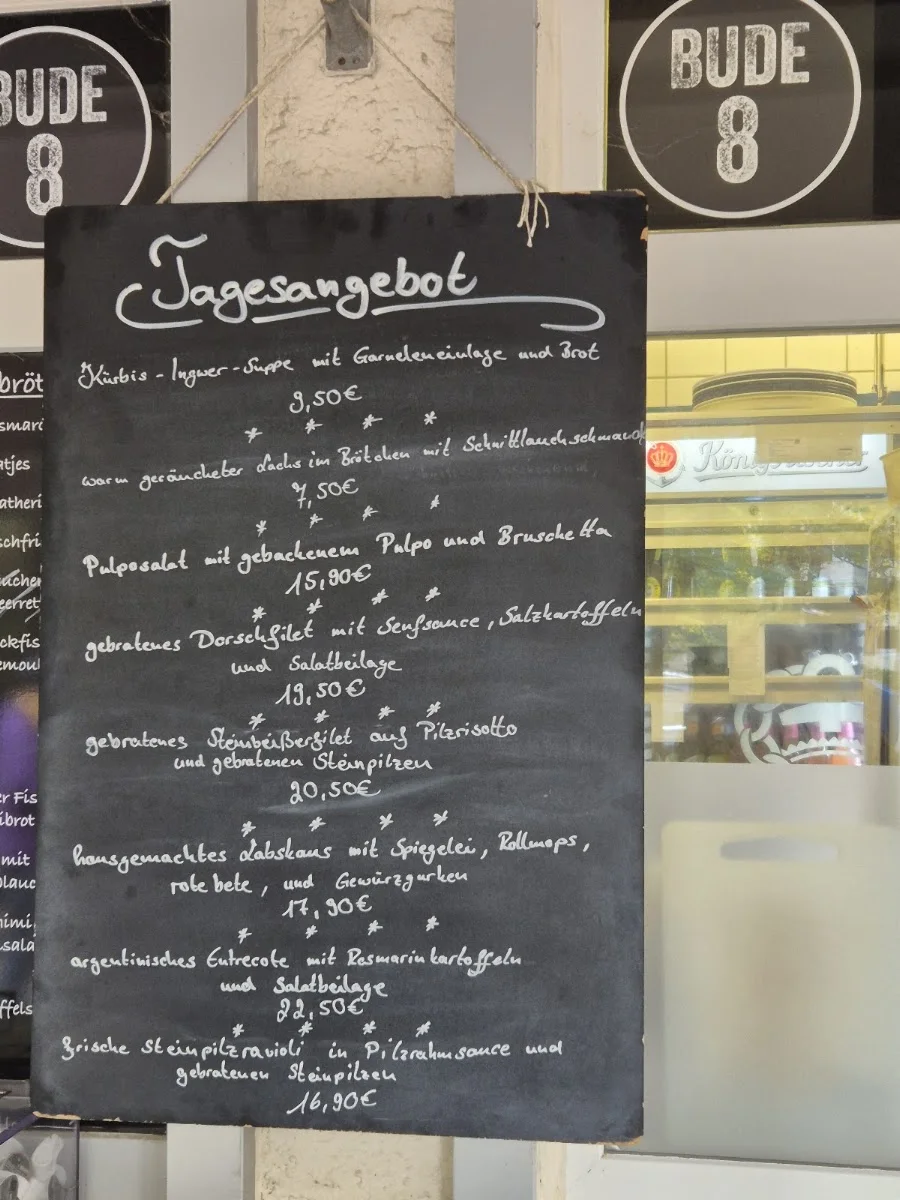 BUDE
8
BUDE
8
Tagesangebot
Kürbis - Ingwer - Suppe mit Garneleneinlage und Brot
9,50€
warm geräucheter Lachs im Brötchen mit Schnittlauchschmand
7,50€
Pulposalat mit gebackenem Pulpo und Bruschetta
15,90€
gebratenes Dorschfilet mit Senfsauce, Salzkartoffeln
und Salatbeilage
19,50€
gebratenes Steinbeißerfilet auf Pilzrisotto
und gebratenen Steinpilzen
20,50€
hausgemachtes Labskaus mit Spiegelei, Rollmops,
rote bete, und Gewürzgurken
17,90€
argentinisches Entrecote mit Rosmarinkartoffeln
und Salatbeilage
22,50€
frische Steinpilzravioli in Pilzrahmsauce und
gebratenen Steinpilzen
16,90€
bröt
smar
atjes
atheri
schfri
ucher
eerret
ckfis
emoul
er Fis
ibrot
mit
blanc
imi
sala
ffels